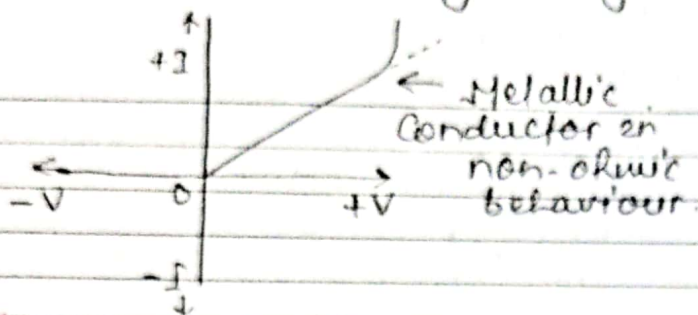 +I
← Metallic
Conductor in
non-ohmic
behaviour.
-V
O
+V
-I